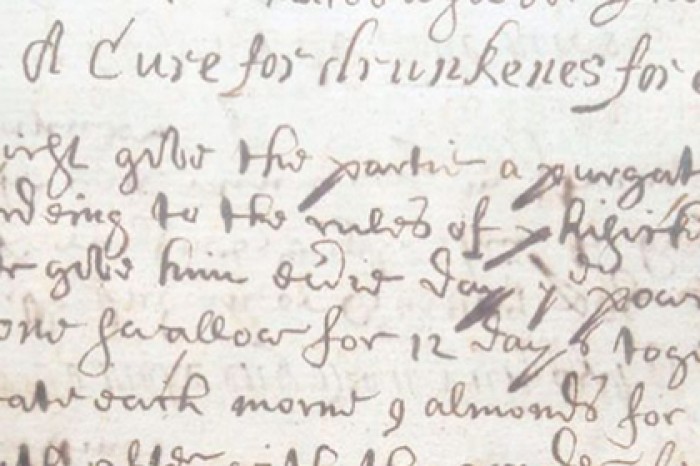 A Cure for drunkenes for
give the partie a purgat
to the rules of phisicke
give him everie day yᵉ pow
one swallow for 12 days toge
eate each morne 9 almonds for